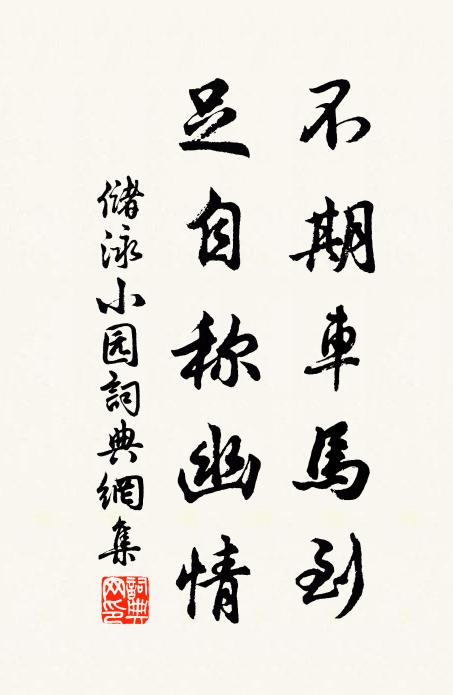 不期車馬到
足自称幽情
儲泳小园詞典網集
詞典网印